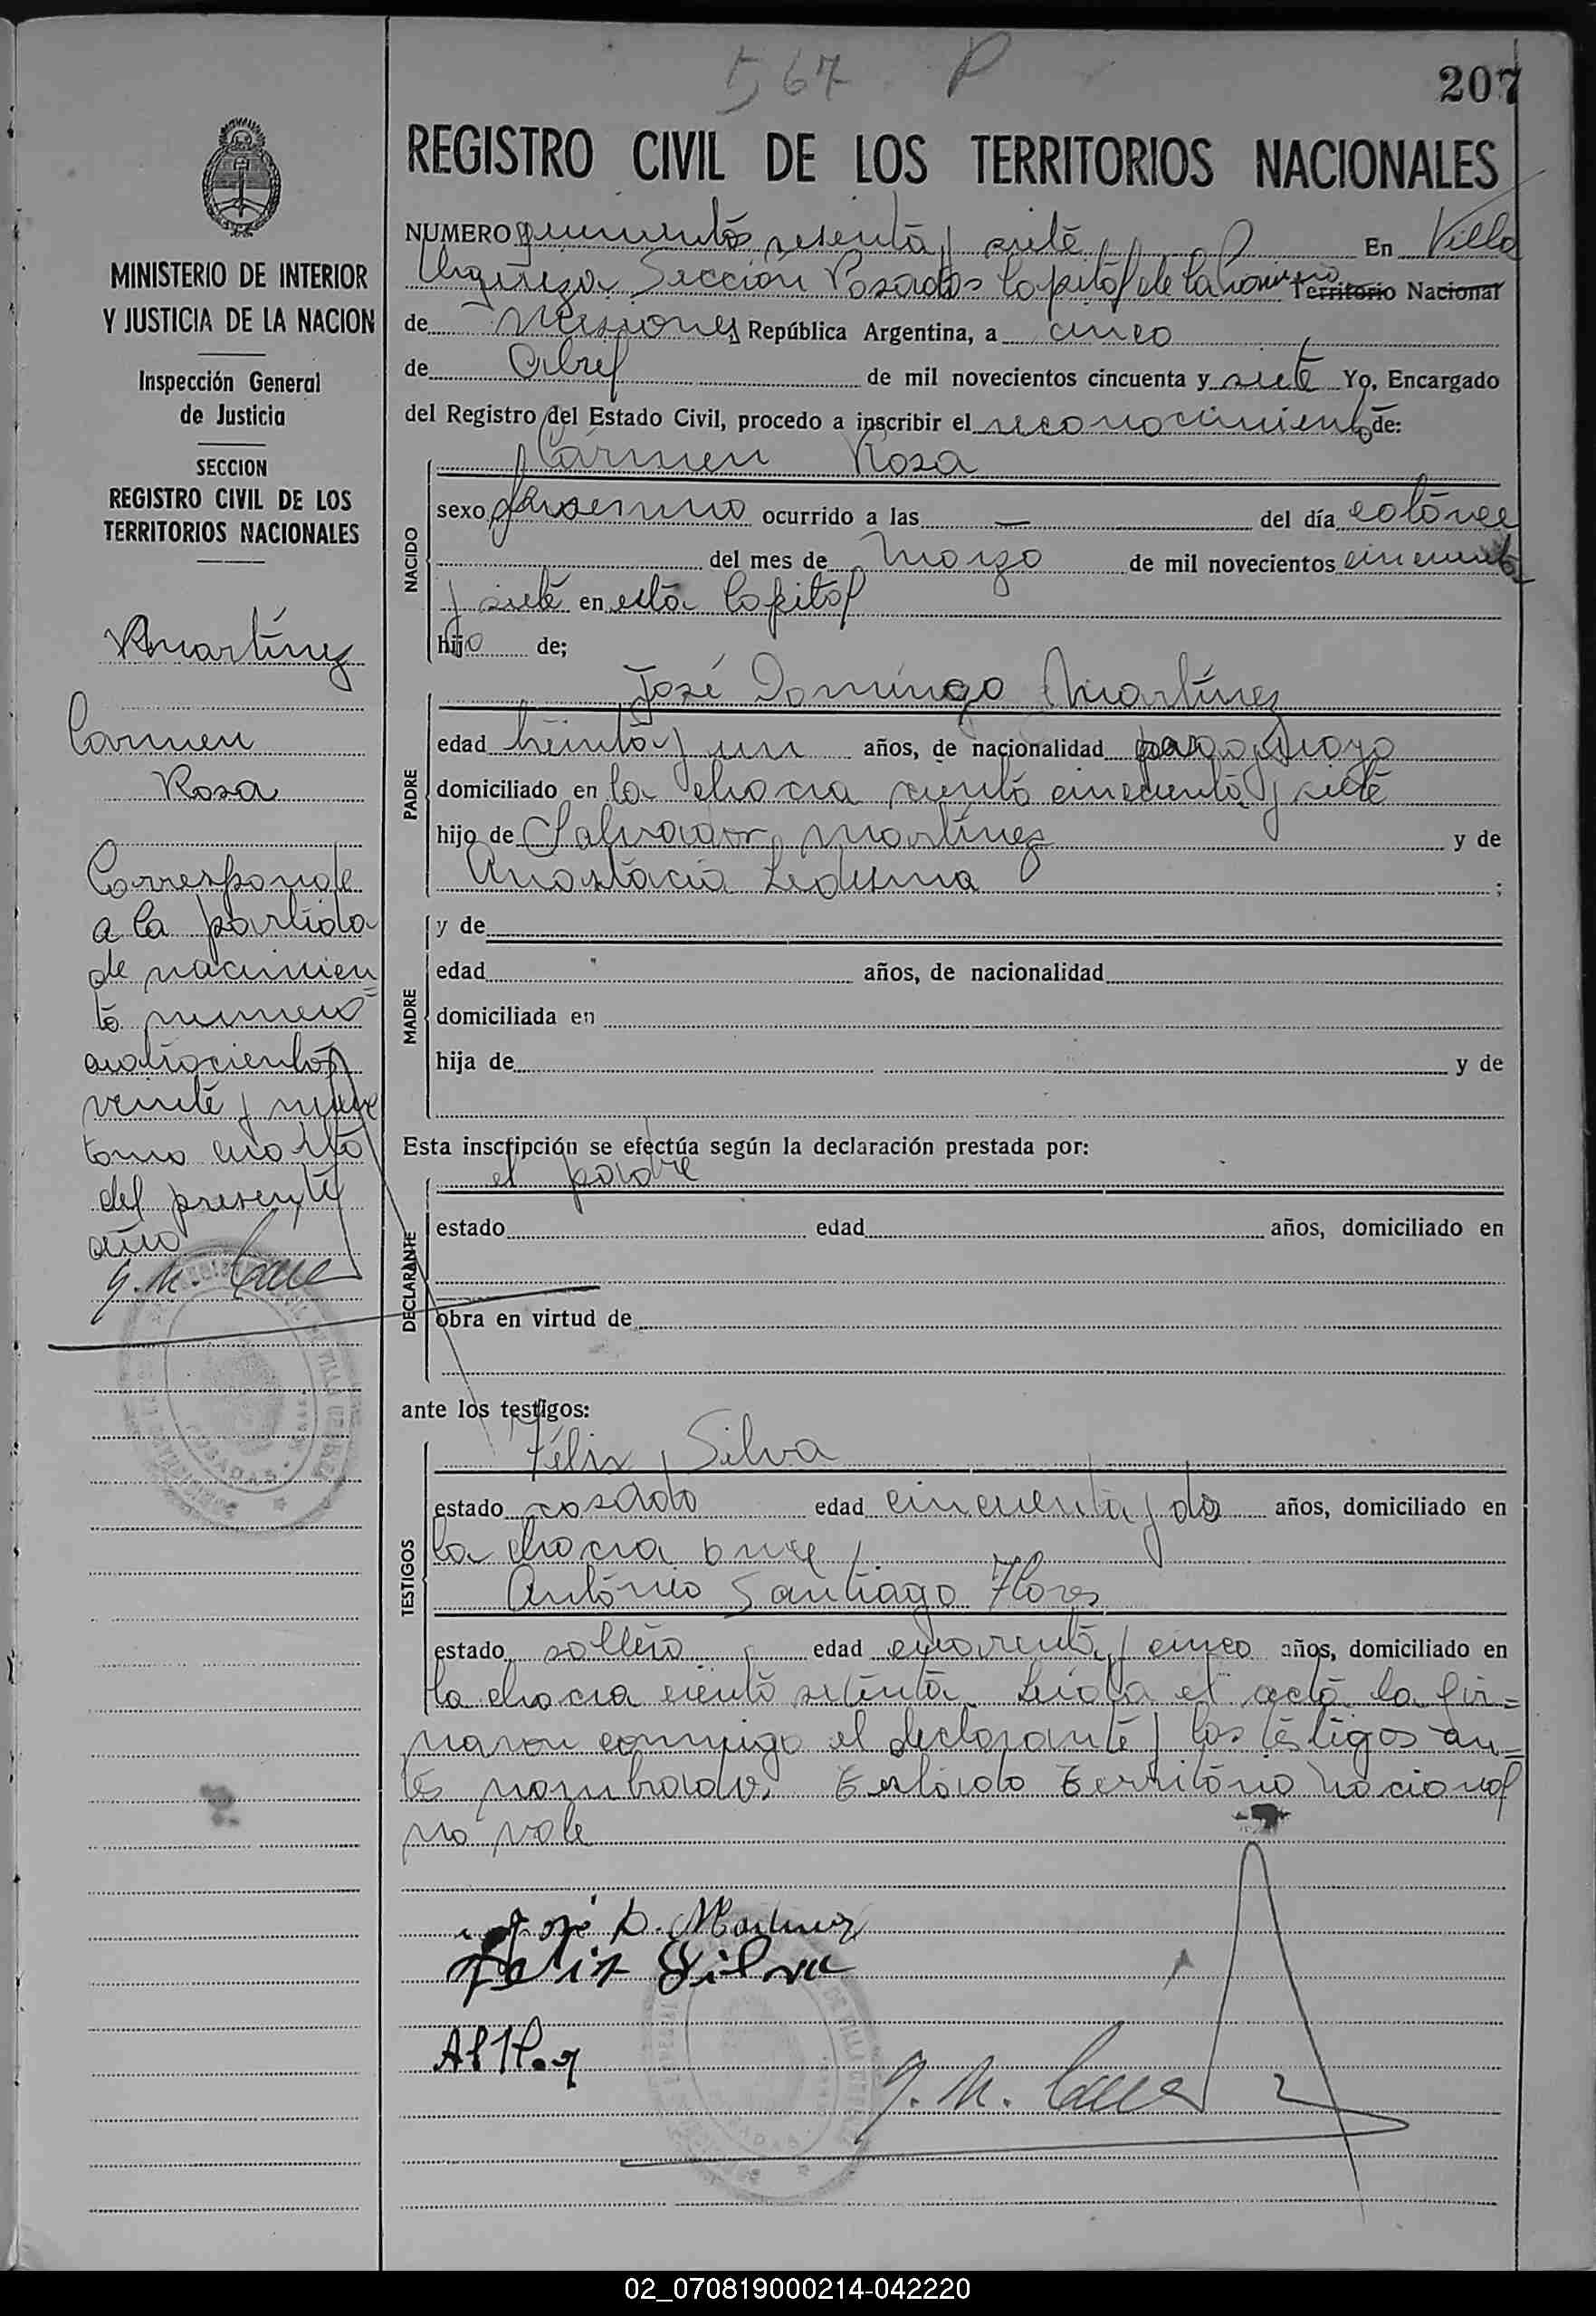 567 P
207
REGISTRO CIVIL DE LOS TERRITORIOS NACIONALES
MINISTERIO DE INTERIOR
Y JUSTICIA DE LA NACION
Inspección General
de Justicia
SECCION
REGISTRO CIVIL DE LOS
TERRITORIOS NACIONALES
Martínez
Carmen
Rosa
Corresponde
a la partida
de nacimien
to número
cuatrocientos
veinte y nueve
tomo cuarto
del presente
año
NUMERO quinientos sesenta y siete En Villa
Urquiza Sección Posadas Capital de la Provincia Territorio Nacional
de Misiones República Argentina, a cinco
de Abril de mil novecientos cincuenta y siete Yo, Encargado
del Registro del Estado Civil, procedo a inscribir el reconocimiento de:
NACIDO
Cármen Rosa
sexo femenino ocurrido a las — del día catorce
del mes de Marzo de mil novecientos cincuenta
y siete en esta Capital
hija de;
PADRE
José Domingo Martínez
edad treinta y un años, de nacionalidad paraguaya
domiciliado en la chacra ciento cincuenta y siete
hijo de Salvador Martínez y de
Anastacia Ledesma ;
MADRE
y de
edad años, de nacionalidad
domiciliada en
hija de y de
Esta inscripción se efectúa según la declaración prestada por:
DECLARANTE
el padre
estado edad años, domiciliado en
obra en virtud de
ante los testigos:
TESTIGOS
Félix Silva
estado casado edad cincuenta y dos años, domiciliado en
la chacra once
António Santiago Flores
estado soltero edad cuarenta y cinco años, domiciliado en
la chacra ciento setenta. Leída el acta la fir=
maron conmigo el declarante y los testigos an=
tes nombrado. Testado Território Nacional
no vale
José D. Martinez
Felix Silva
02_070819000214-042220